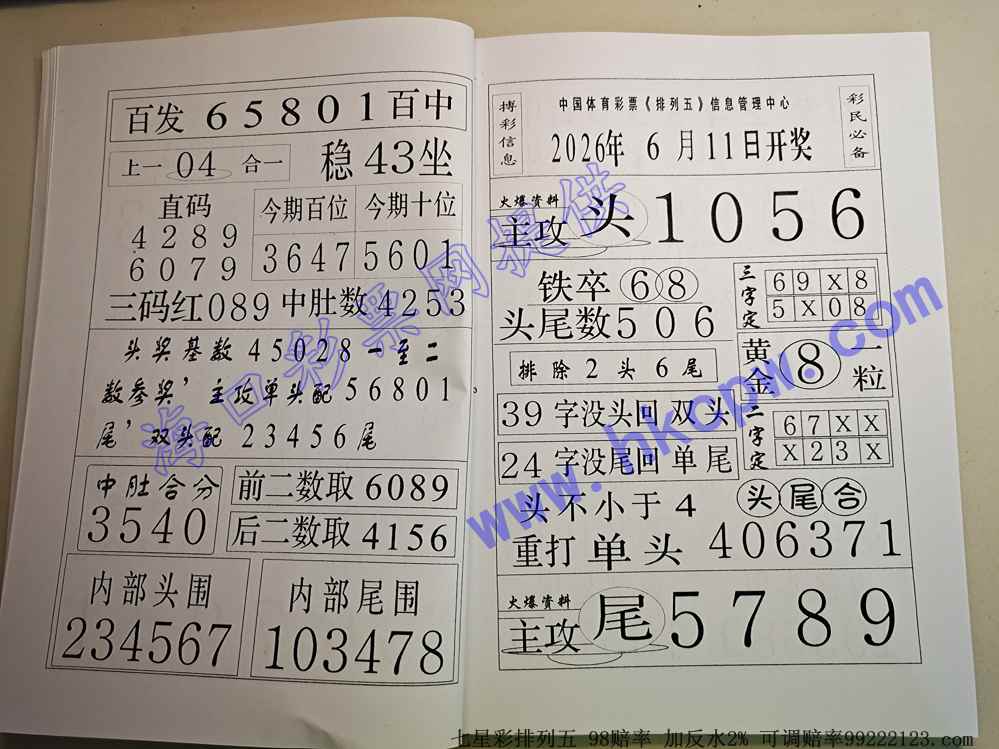 百发 65801 百中
上一 04 合一
稳 43 坐
直码
4289
6079
今期百位 今期十位
3647 5601
三码红089 中肚数4253
头奖基数45028一至二
数参奖’主攻单头配56801
尾’双头配23456尾
中肚合分
3540
前二数取 6089
后二数取 4156
内部头围
234567
内部尾围
103478
搏彩信息
中国体育彩票《排列五》信息管理中心
2026年 6 月11日开奖
彩民必备
火爆资料
主攻 头 1056
铁卒 68
头尾数506
三字定
69X8
5X08
排除2头6尾
黄金 8 一粒
39 字没头回 双头
24 字没尾回 单尾
二字定
67XX
X23X
头不小于4
头尾合
重打单头 406371
火爆资料
主攻 尾 5789
海口彩票网提供
www.hkcpw.com
七星彩排列五 98赔率 加反水2% 可调赔率99222123.com